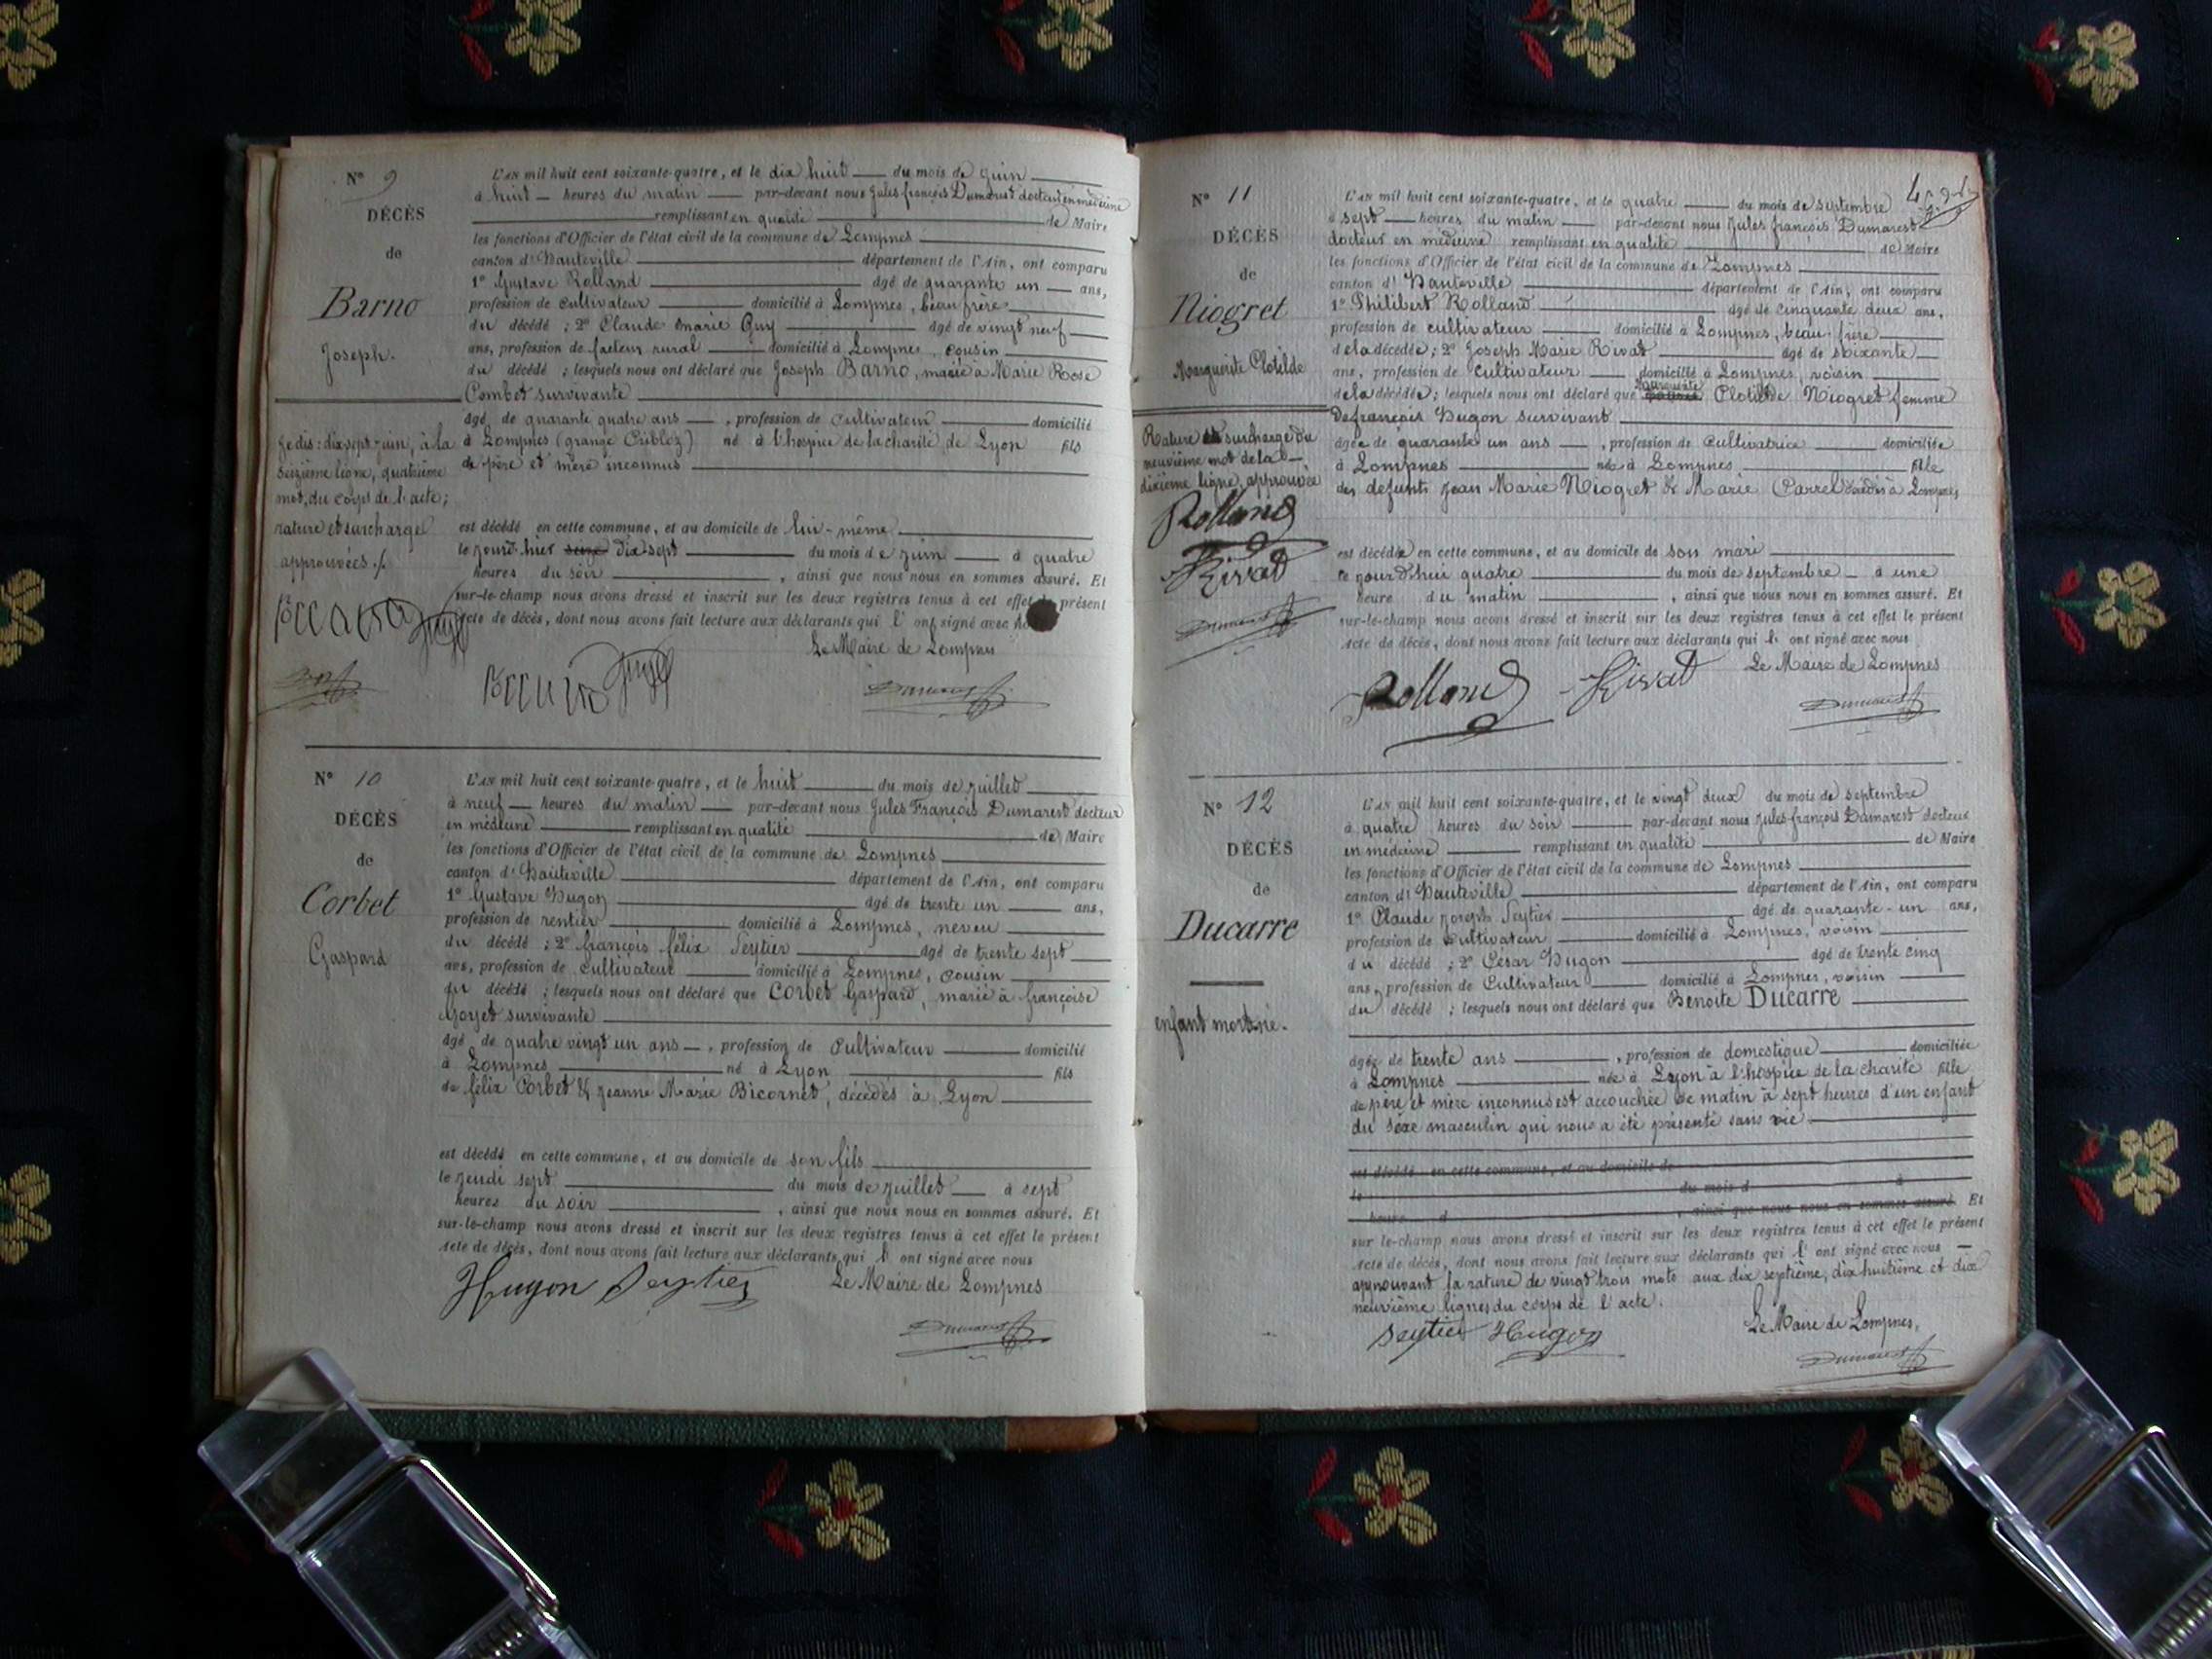 N° 9
DÉCÈS
de
Barno
Joseph.
Je dis : dix sept juin, à la
seizième ligne, quatrième
mot, du corps de l'acte ;
rature et surcharge
approuvées ./.
L'AN mil huit cent soixante-quatre, et le dix huit du mois de juin
à huit heures du matin par-devant nous Jules françois Dumarest docteur en médecine
remplissant en qualité de Maire
les fonctions d'Officier de l'état civil de la commune de Lompnes
canton d'Hauteville département de l'Ain, ont comparu
1° Gustave Rolland âgé de quarante un ans,
profession de cultivateur domicilié à Lompnes, beau frère
du décédé ; 2° Claude Marie Guy âgé de vingt neuf
ans, profession de facteur rural domicilié à Lompnes, cousin
du décédé ; lesquels nous ont déclaré que Joseph Barno, marié à Marie Rose
Combet survivante
âgé de quarante quatre ans, profession de cultivateur domicilié
à Lompnes (grange Cublez) né à l'hospice de la charité de Lyon fils
de père et mère inconnus
est décédé en cette commune, et au domicile de lui-même
le jourd'hier seize dix sept du mois de juin à quatre
heures du soir, ainsi que nous nous en sommes assuré. Et
sur-le-champ nous avons dressé et inscrit sur les deux registres tenus à cet effet le présent
Acte de décès, dont nous avons fait lecture aux déclarants qui l'ont signé avec
Le Maire de Lompnes
Dumarest
N° 10
DÉCÈS
de
Corbet
Gaspard
L'AN mil huit cent soixante-quatre, et le huit du mois de juillet
à neuf heures du matin par-devant nous Jules François Dumarest docteur
en médecine remplissant en qualité de Maire
les fonctions d'Officier de l'état civil de la commune de Lompnes
canton d'Hauteville département de l'Ain, ont comparu
1° Gustave Hugon âgé de trente un ans,
profession de rentier domicilié à Lompnes, neveu
du décédé ; 2° françois félix Seytier âgé de trente sept
ans, profession de Cultivateur domicilié à Lompnes, cousin
du décédé ; lesquels nous ont déclaré que Corbet Gaspard, marié à françoise
Goyet survivante
âgé de quatre vingt un ans, profession de Cultivateur domicilié
à Lompnes né à Lyon fils
de félix Corbet & Jeanne Marie Bicornet, décédés à Lyon
est décédé en cette commune, et au domicile de son fils
le jeudi sept du mois de juillet à sept
heures du soir, ainsi que nous nous en sommes assuré. Et
sur-le-champ nous avons dressé et inscrit sur les deux registres tenus à cet effet le présent
Acte de décès, dont nous avons fait lecture aux déclarants qui l'ont signé avec nous
Hugon Seytier Le Maire de Lompnes
Dumarest
4
N° 11
DÉCÈS
de
Niogret
Marguerite Clotilde
Rature et surcharge du
neuvième mot de la
dixième ligne, approuvée
Rolland
Rivat
Dumarest
L'AN mil huit cent soixante-quatre, et le quatre du mois de septembre
à sept heures du matin par-devant nous Jules françois Dumarest
docteur en médecine remplissant en qualité de Maire
les fonctions d'Officier de l'état civil de la commune de Lompnes
canton d'Hauteville département de l'Ain, ont comparu
1° Philibert Rolland âgé de cinquante deux ans,
profession de cultivateur domicilié à Lompnes, beau-frère
de la décédée ; 2° Joseph Marie Rivat âgé de soixante
ans, profession de Cultivateur domicilié à Lompnes, voisin
de la décédée ; lesquels nous ont déclaré que Marguerite Clotilde Niogret femme
de françois Hugon survivant
âgée de quarante un ans, profession de Cultivatrice domiciliée
à Lompnes née à Lompnes fille
des défunts Jean Marie Niogret & Marie Carrel décédés à Lompnes
est décédée en cette commune, et au domicile de son mari
ce jourd'hui quatre du mois de septembre à une
heure du matin, ainsi que nous nous en sommes assuré. Et
sur-le-champ nous avons dressé et inscrit sur les deux registres tenus à cet effet le présent
Acte de décès, dont nous avons fait lecture aux déclarants qui l'ont signé avec nous
Rolland Rivat Le Maire de Lompnes
Dumarest
N° 12
DÉCÈS
de
Ducarre
enfant mort-né.
L'AN mil huit cent soixante-quatre, et le vingt deux du mois de septembre
à quatre heures du soir par-devant nous Jules-françois Dumarest docteur
en médecine remplissant en qualité de Maire
les fonctions d'Officier de l'état civil de la commune de Lompnes
canton d'Hauteville département de l'Ain, ont comparu
1° Claude Joseph Seytier âgé de quarante-un ans,
profession de Cultivateur domicilié à Lompnes, voisin
du décédé ; 2° César Hugon âgé de trente cinq
ans, profession de Cultivateur domicilié à Lompnes, voisin
du décédé ; lesquels nous ont déclaré que Benoite Ducarre
âgée de trente ans, profession de domestique domiciliée
à Lompnes née à Lyon à l'hospice de la charité fille
de père et mère inconnus est accouchée ce matin à sept heures d'un enfant
du sexe masculin qui nous a été présenté sans vie
est décédé en cette commune, et au domicile de
le du mois d à
heure d, ainsi que nous nous en sommes assuré. Et
sur le-champ nous avons dressé et inscrit sur les deux registres tenus à cet effet le présent
Acte de décès, dont nous avons fait lecture aux déclarants qui l'ont signé avec nous
approuvant la rature de vingt trois mots aux dix septième, dix huitième et dix
neuvième lignes du corps de l'acte.
Seytier Hugon Le Maire de Lompnes,
Dumarest